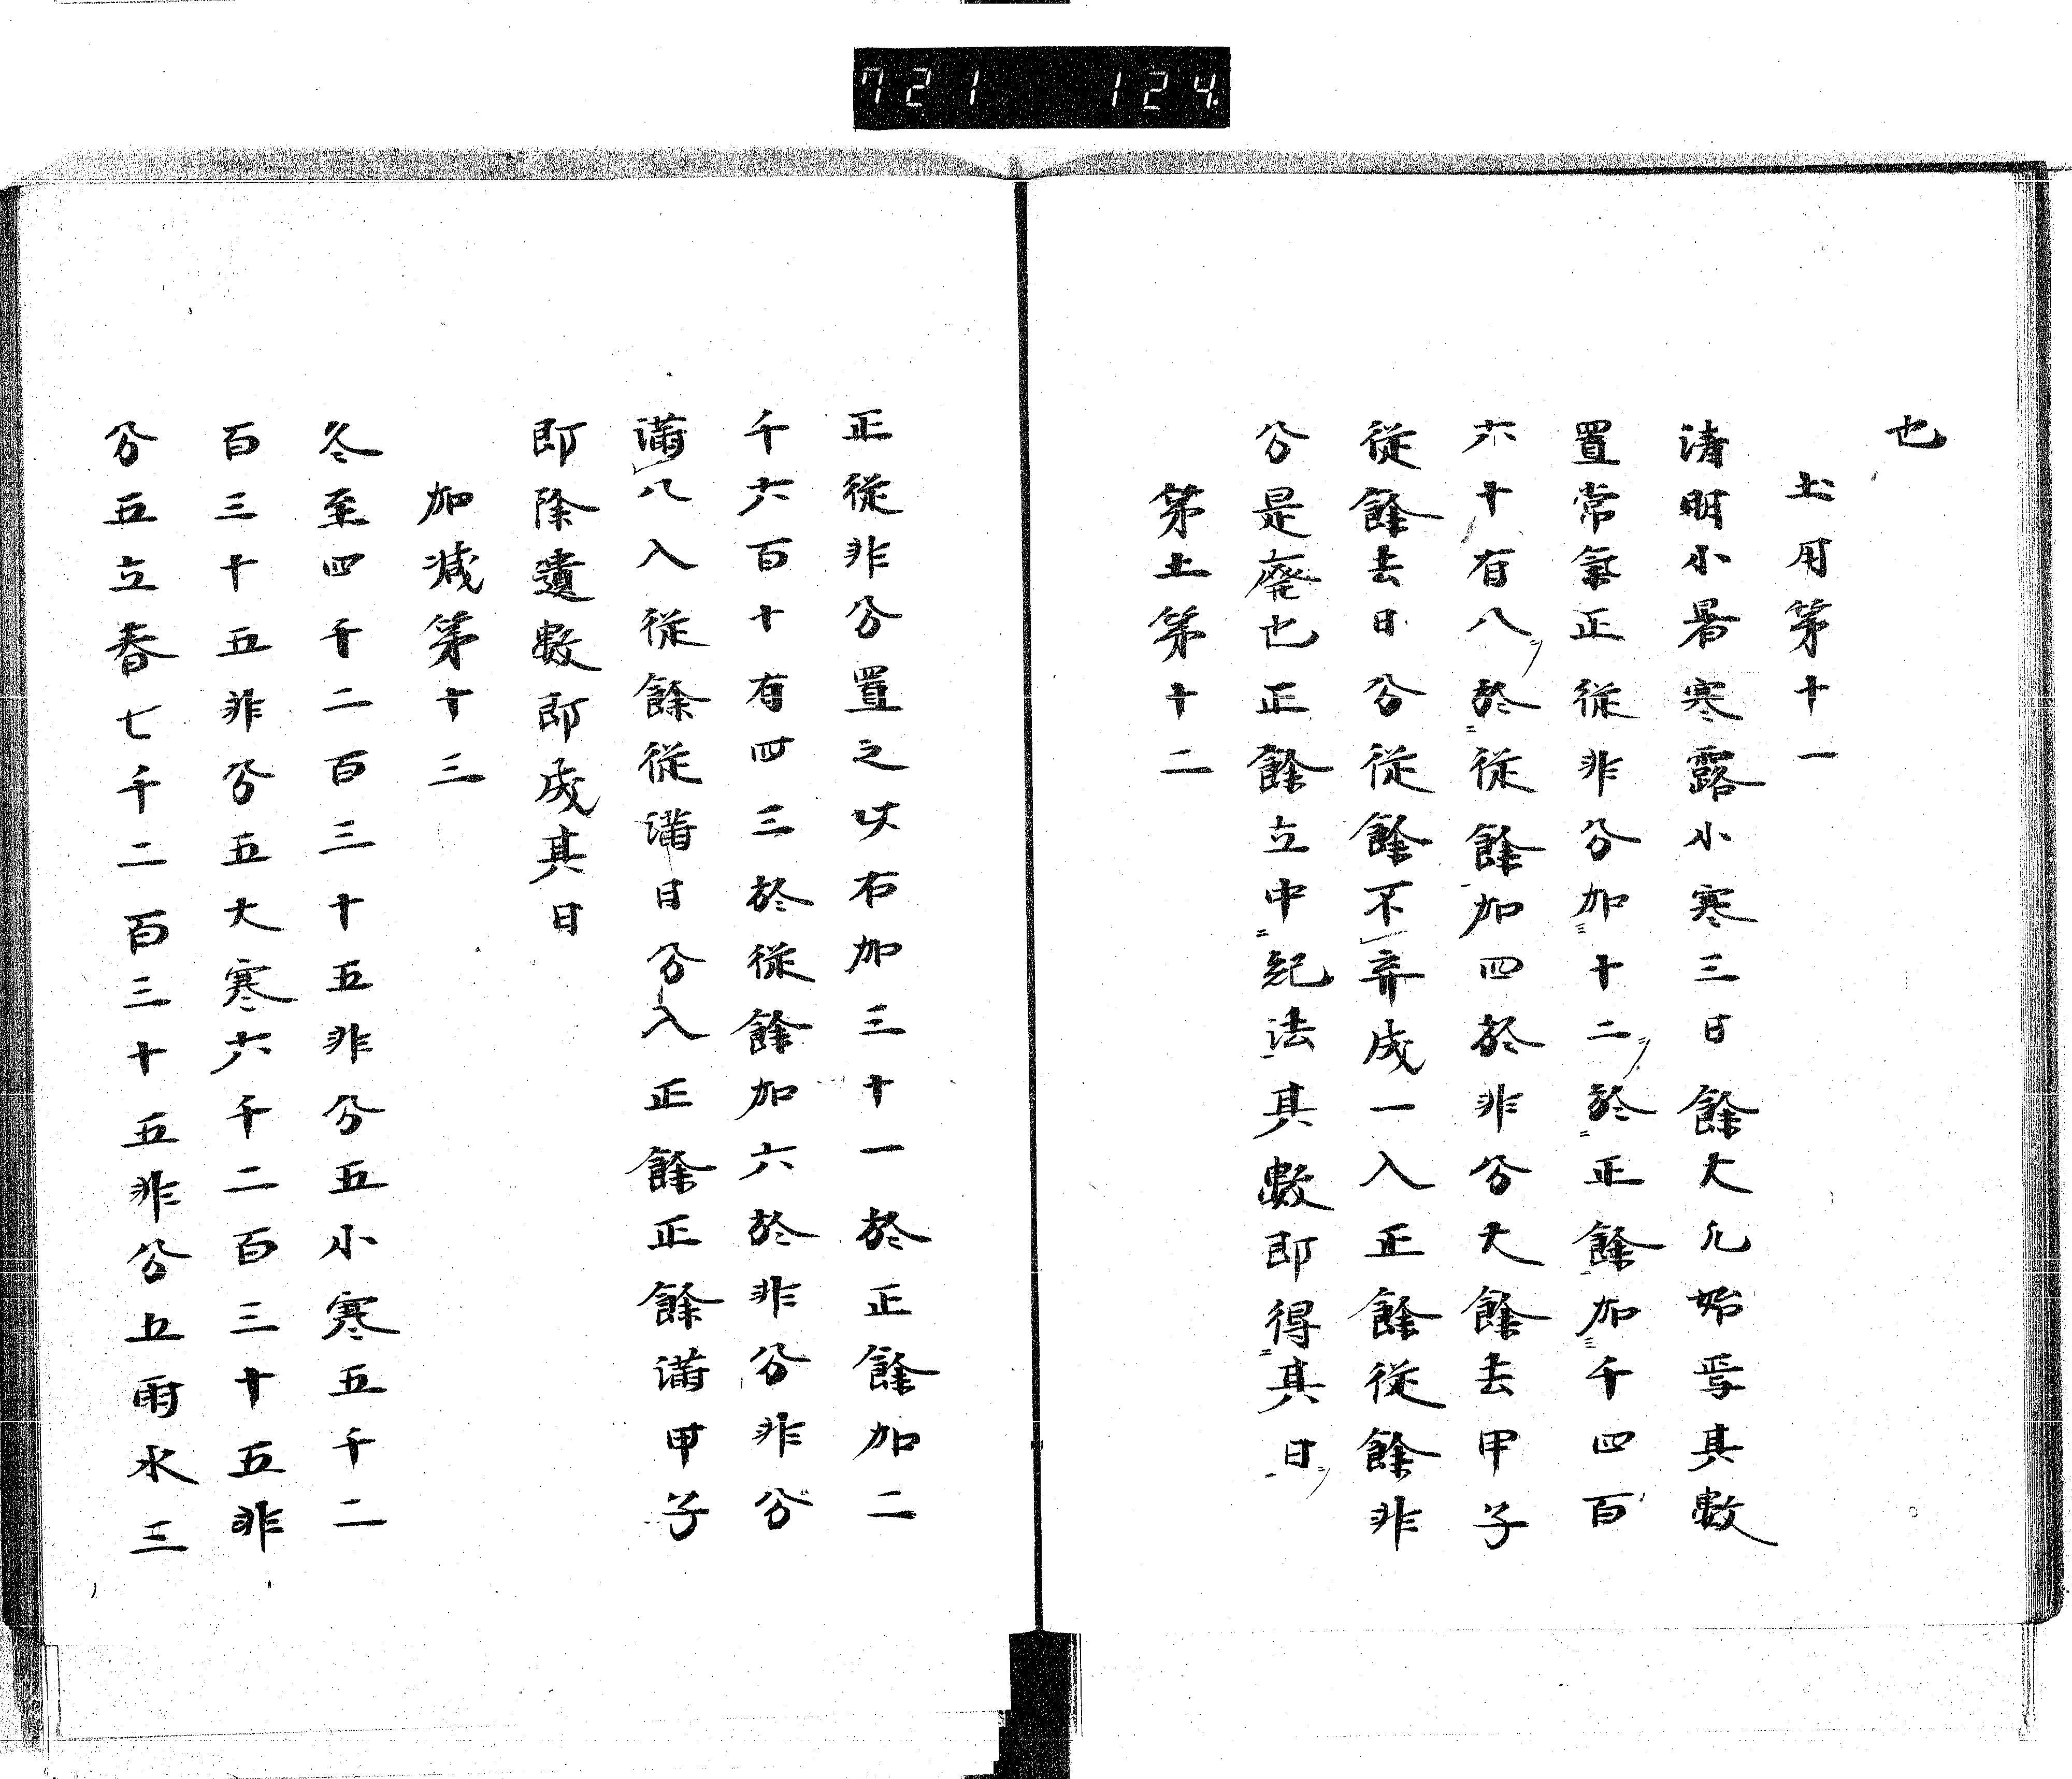 721 124
也
土用第十一
清明小暑寒露小寒三日餘大凡始焉其數
置常氣正従非分加十二於正餘加千四百
六十有八於従餘加四於非分大餘去甲子
従餘去日分従餘不弃成一入正餘従餘非
分是廢也正餘立中紀法其數即得其日
第土第十二
正従非分置之以右加三十一於正餘加二
千六百十有四三於従餘加六於非分非分
満八入従餘従満日分入正餘正餘満甲子
即除遺數即成其日
加減第十三
冬至四千二百三十五非分五小寒五千二
百三十五非分五大寒六千二百三十五非
分五立春七千二百三十五非分五雨水三